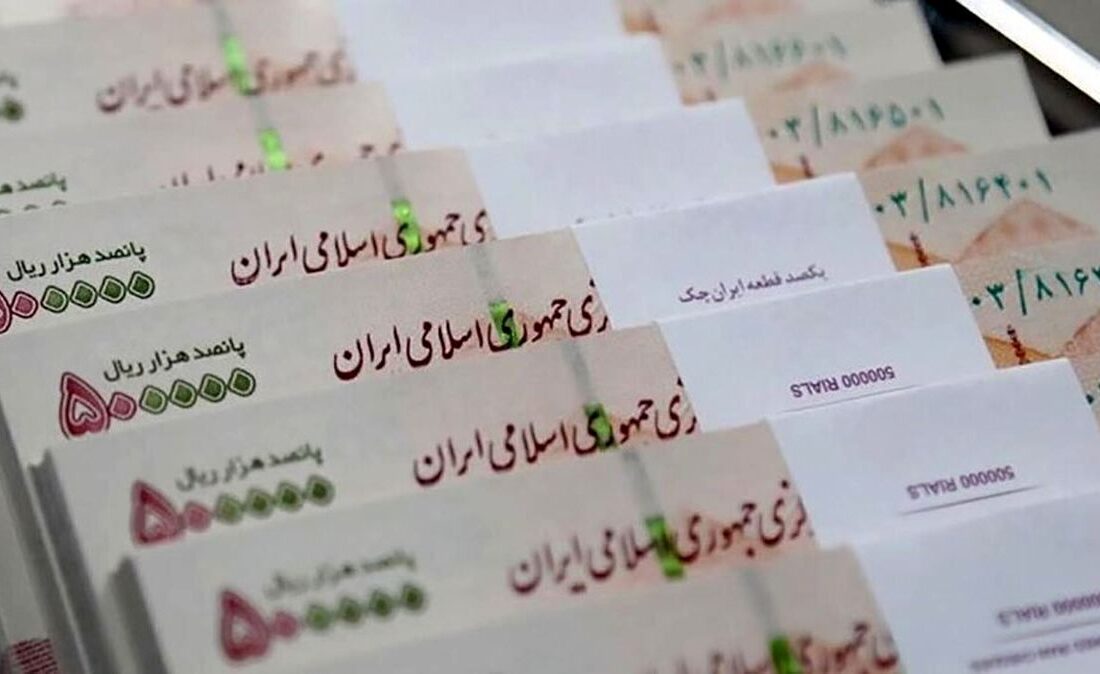 ۰۳/۸۱۶۶۰۱
جمهوری اسلامی ایران
۰۳/۸۱۶۵۰۱
پانصد هزار ریال
۰۳/۸۱۶۴۰۱
ی جمهوری اسلامی ایران
پانصد هزار ریال
۵۰۰۰۰۰
یکصد قطعه ایران چک
۰۳/۸۱۶
زی جمهوری اسلامی ایران
پانصد هزار ریال
۵۰۰۰۰۰
500000 RIALS
زی جمهوری اسلامی ایران
پانصد هزار ریال
۵۰۰۰۰۰
500000 RIALS
کزی جمهوری اسلامی ایران
پانصد هزار ریال
۵۰۰۰۰۰
500000 RIALS
جمهوری اسلامی